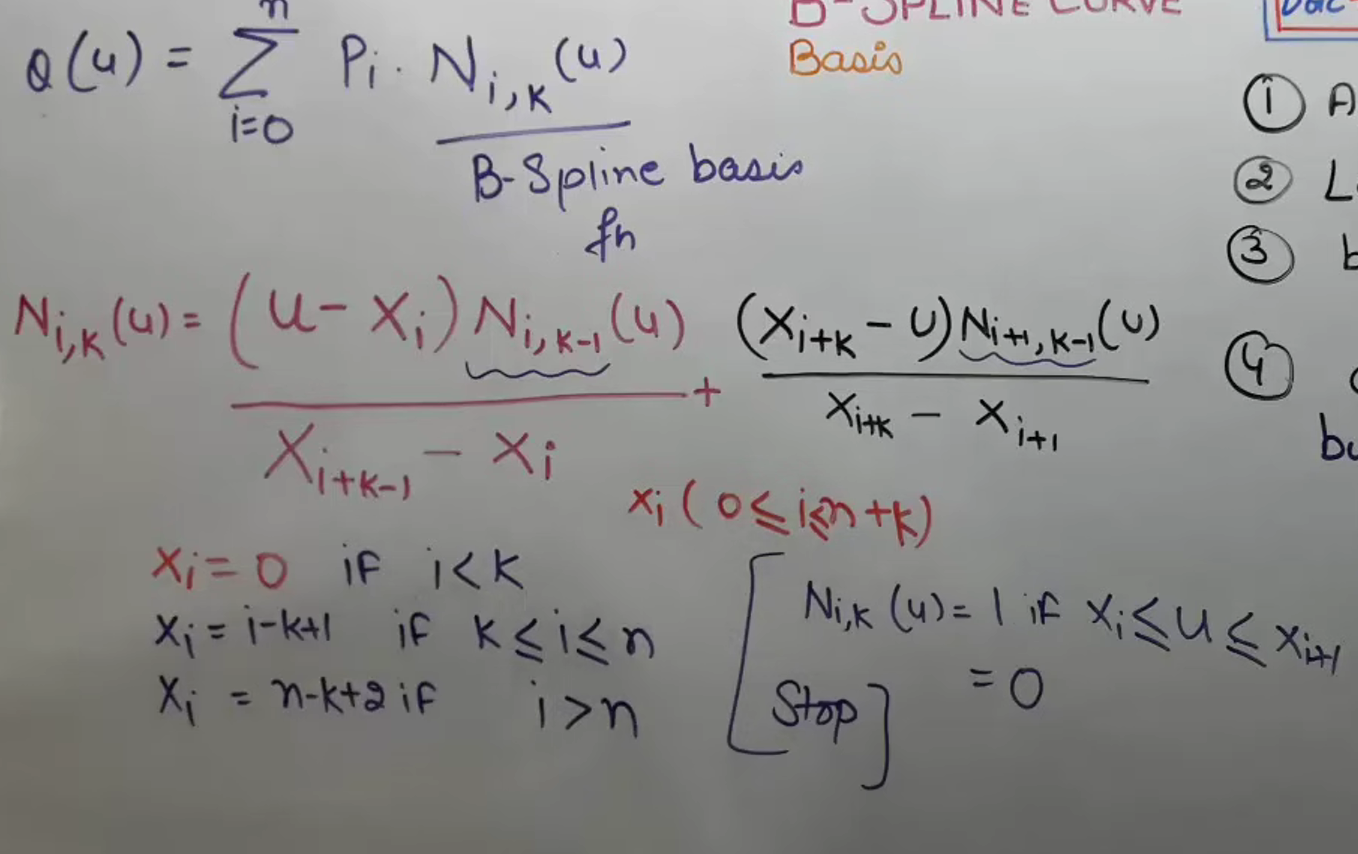 B-SPLINE CURVE
Basis
Q(u) = Σ_{i=0}^{n} Pi . N_{i,k}(u)
B-Spline basis
fn
N_{i,k}(u) = (u - X_i) N_{i,k-1}(u) / (X_{i+k-1} - X_i) + (X_{i+k} - U) N_{i+1,k-1}(U) / (X_{i+k} - X_{i+1})
x_i (0 ≤ i ≤ n+k)
X_i = 0 if i < k
X_i = i-k+1 if k ≤ i ≤ n
X_i = n-k+2 if i > n
[N_{i,k}(u) = 1 if X_i ≤ U ≤ X_{i+1}
= 0
Stop]
① A
② L
③ b
④
bu